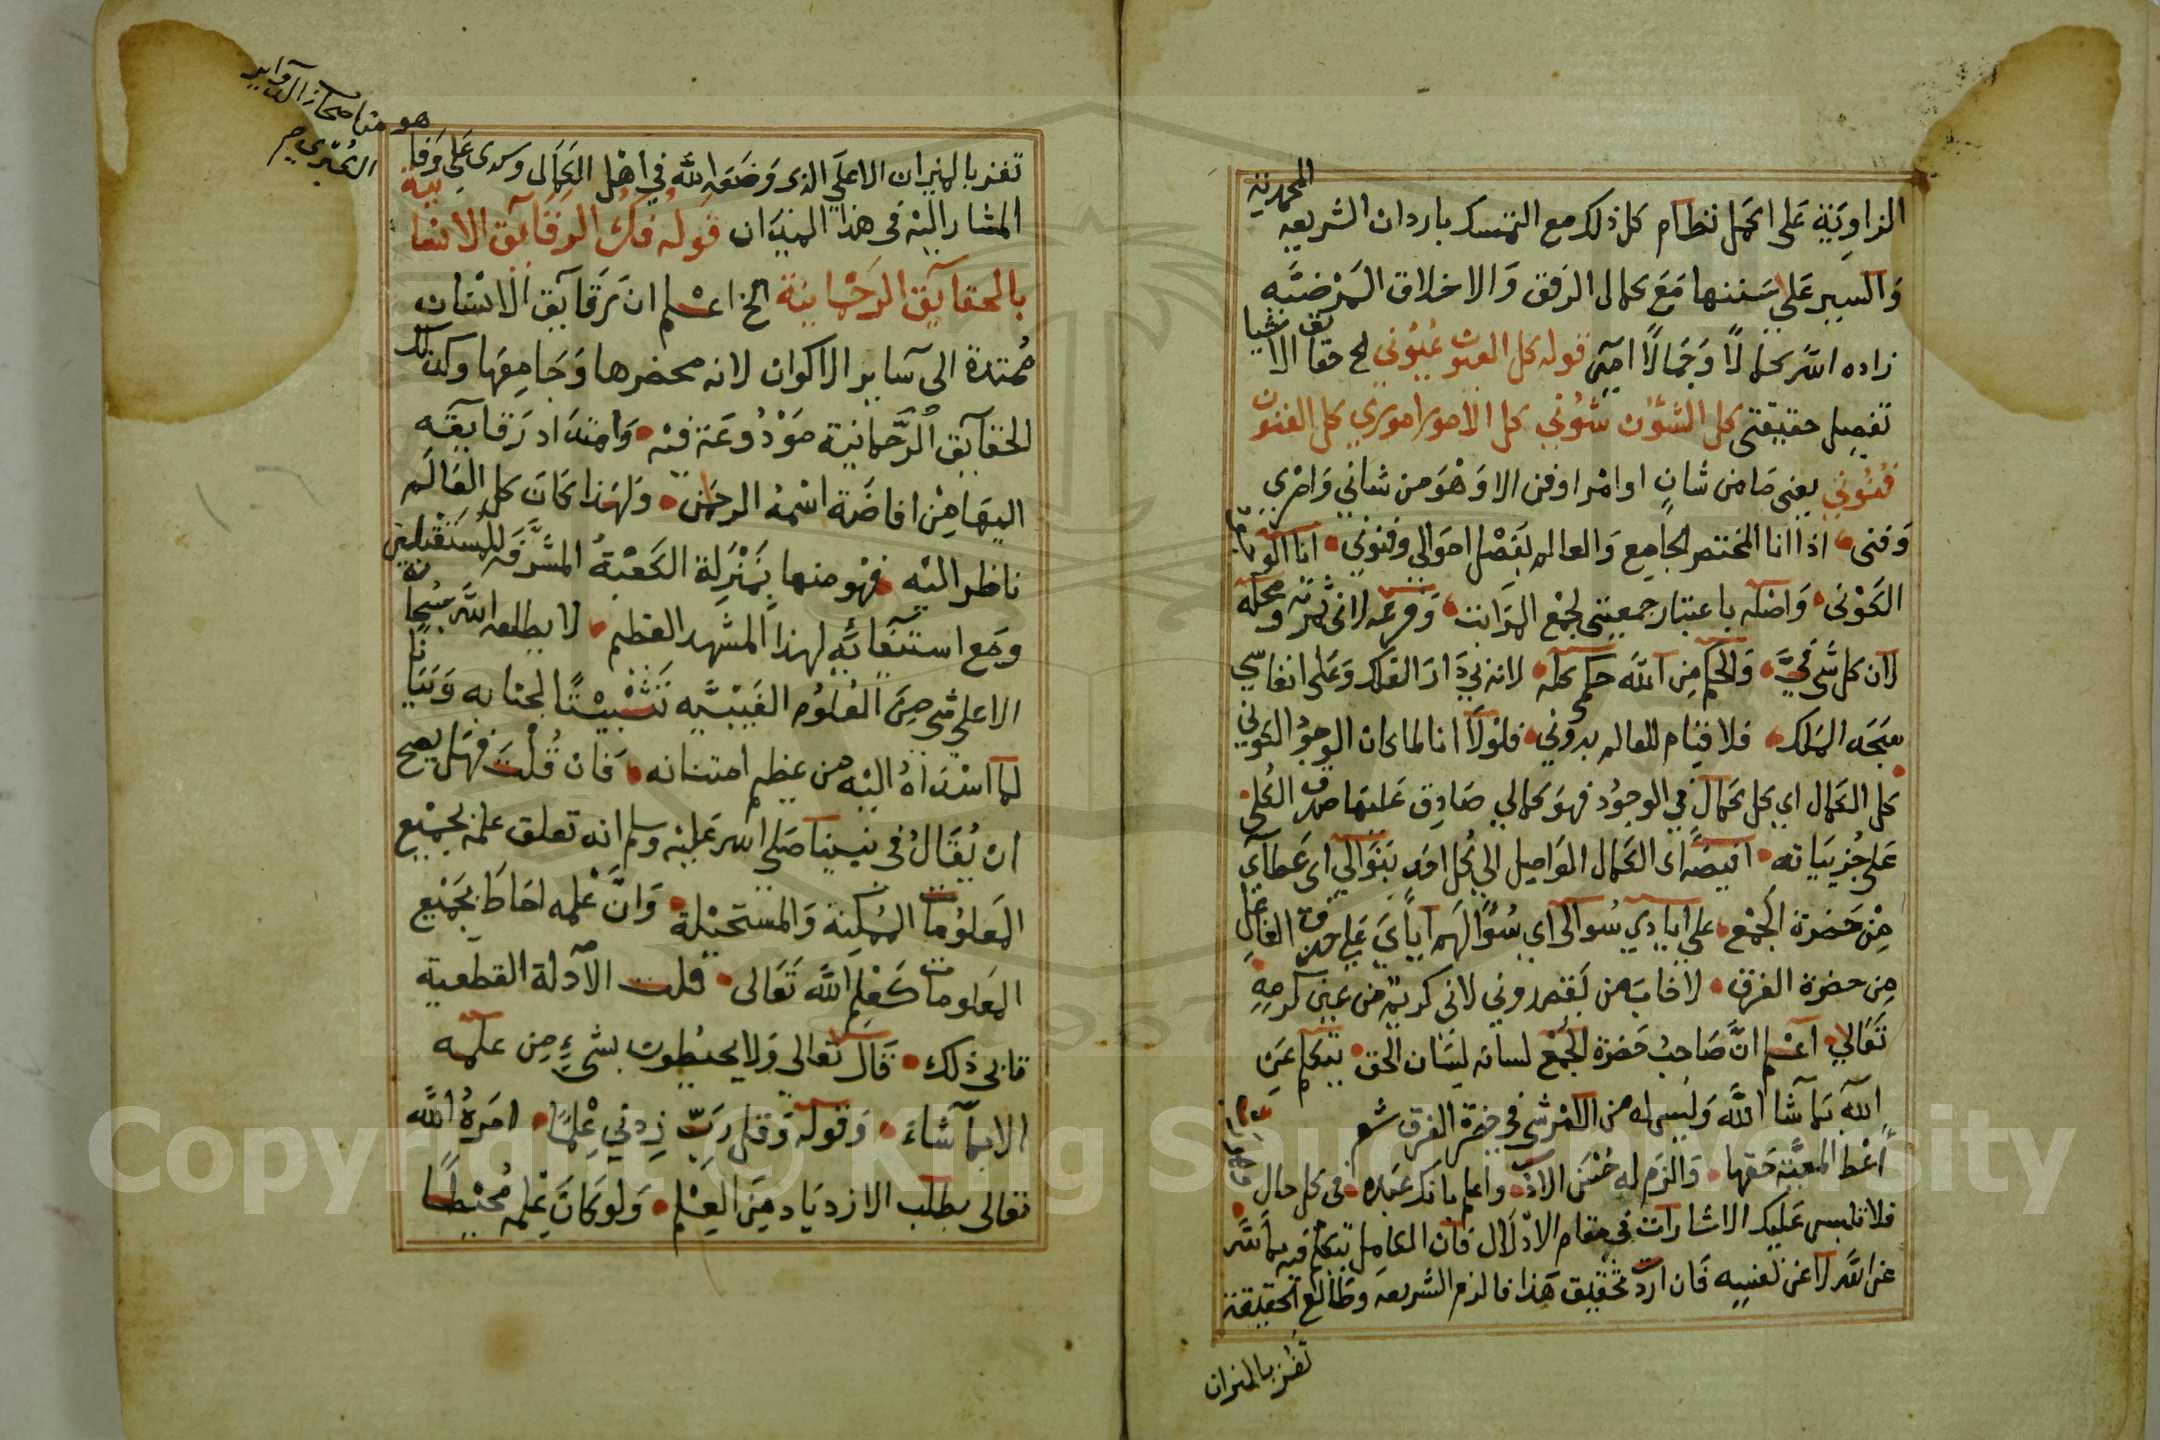 الزاوية على اكمل نظام كل ذلك مع التمسك باردان الشريعه المحمدية
والسير على سننها مع كمال الرفق والاخلاق المرضيّه
زاده الله كمالًا وجمالًا امين قوله كل العيون عيوني لح حقايق الاشيا
تفصيل حقيقتي كل الشئون شئوني كل الامور اموري كل الفنون
فنوني يعني ما من شان او امر او فن الا وهو من شاني وامري
وفني اذ انا المختصر الجامع والعالم بفصل احوالي وفنوني انا
الكوني واصله باعتبار جمعيتي لجمع المراتب وفرعه لاني ثمرته ومحله
لان كل شي فيّ والحكم من الله حكمي كله لانه بي دار الفلك وعلى انفاسي
سجد الملك فلا قيام للعالم بدوني فلولا انا لما كان الوجود الكوني
كل الكمال اي كل كمال في الوجود فهو كمالي صادق عليها صدق الكلي
على جزيياته افيضه اي الكمال الواصل الي كل احد بنوالي اي عطاي
من حضرة الجمع على ايادي سوالي اي سوالهم اياي على قدر القابل
من حضرة الفرق لا خاب من يقصدوني لاني كريم من عين كرمه
تعالى اعلم ان صاحب حضرة الجمع لسانه لسان الحق يتكلم عن
الله بما شا الله وليس له من الامر شي في حضرة الفرق شعر
اعط المعيّة حقها والزم له حسن الادب واعلم بانك عبده في كل حال
فلا تلبس عليك الاشارات في مقام الادلال فان الكامل يتكلم فيه بالله
عن الله لا عن نفسه فان اردت تحقيق هذا فالزم الشريعه وطالع الحقيقة
تفز بالميزان
هو
تفز بالميزان الاعلى الذي وضعه الله في اهل الكمال وسدى على وفا
المشار اليه في هذا الميدان قوله فك الرقايق الانسانية
بالحقايق الرحمانية الخ اعلم ان رقايق الانسان
ممتدة الى ساير الاكوان لانه محضرها وجامعها وكذلك
الحقايق الرحمانية مودوعة فيه وامتداد رقايقه
اليها من افاضة اسمه الرحمن ولهذا كان كل العالم
ناظر اليه فهو منها بمنزلة الكعبة المشرفه للمستقبلين
ومع استيفائه لهذا المشهد العظيم لا يطلعه الله سبحانه
الا على شي من العلوم الغيبيه تثبيتًا لجنابه وتبيانا
لما اسداه اليه من عظيم امتنانه فان قلت فهل يصح
ان يقال في نبينا صلى الله عليه وسلم انه تعلق علمه بجميع
المعلومات الممكنة والمستحيلة وان علمه احاط بجميع
المعلومات كعلم الله تعالى قلت الادلة القطعية
تابى ذلك قال تعالى ولا يحيطون بشيء من علمه
الا بما شاء وقوله وقل رب زدني علما امره الله
تعالى بطلب الازدياد من العلم ولو كان علمه محيطًا